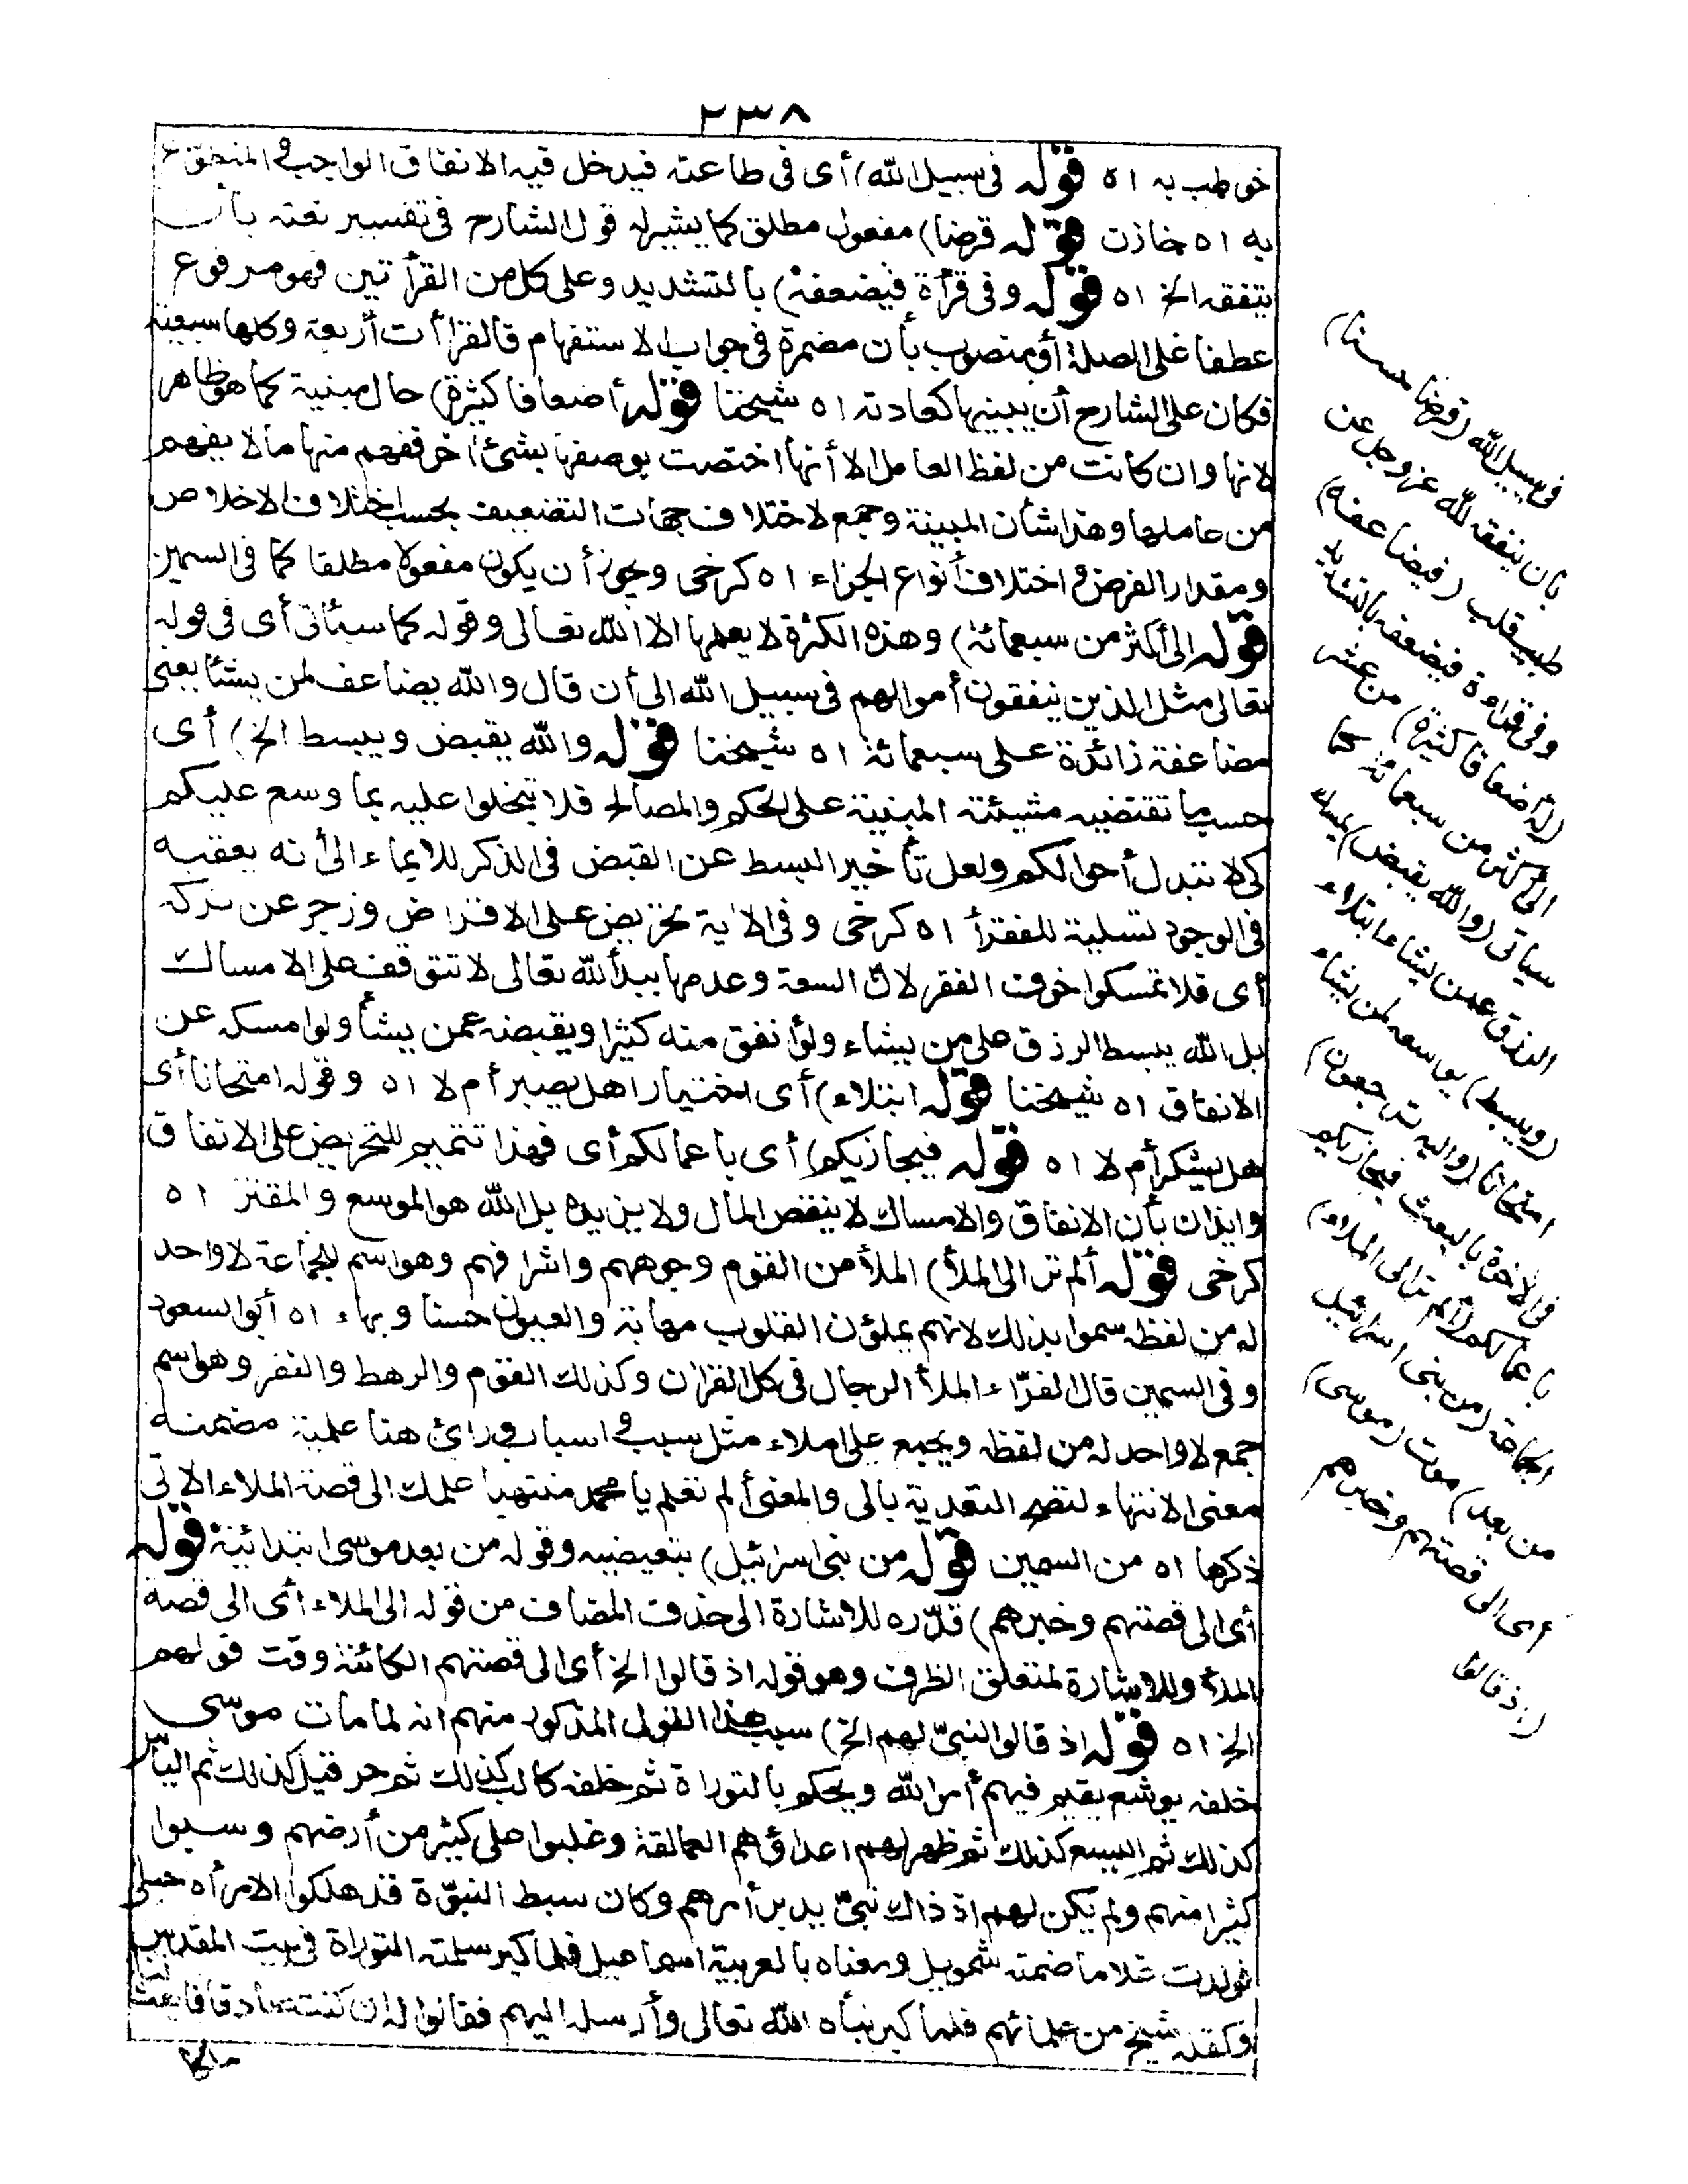 ٢٣٨
خوطب به اه قوله في سبيل الله) أى فى طاعته فيدخل فيه الانفاق الواجب و المتطوع
به اه خازن قوله قرضا) مفعول مطلق كما يشير له قول الشارح فى تفسير نعته بأن
ينفقه الخ اه قوله وفى قرأة فيضعفه) بالتشديد وعلى كل من القرأتين فهو مرفوع
عطفا على الصلة أو منصوب بأن مضمرة فى جواب الاستفهام فالقرأات أربعة وكلها سبعية
فكان على الشارح أن يبينها كعادته اه شيخنا قوله أضعافا كثيرة) حال مبنية كما هو ظاهر
لانها وان كانت من لفظ العامل الا أنها اختصت بوصفها بشئ اخر ففهم منها ما لا يفهم
من عاملها وهذا شأن المبينة وجمع لاختلاف جهات التضعيف بحسب اختلاف الاخلاص
ومقدار القرض و اختلاف أنواع الجزاء اه كرخى ويجوز أن يكون مفعولا مطلقا كما فى السمين
قوله الى أكثر من سبعمائة) وهذه الكثرة لا يعلمها الا الله تعالى وقوله كما سيأتى أى فى قوله
تعالى مثل الذين ينفقون أموالهم فى سبيل الله الى أن قال والله يضاعف لمن يشئا يعنى
مضاعفة زائدة على سبعمائة اه شيخنا قوله والله يقبض ويبسط الخ) أى
حسب ما تقتضيه مشيئته المبنية على الحكم والمصالح فلا تبخلوا عليه بما وسع عليكم
كى لا تبدل أحوالكم ولعل تأخير البسط عن القبض فى الذكر للايماء الى أنه يعقبه
فى الوجود تسلية للفقرأ اه كرخى وفى الاية تحريض على الاقتراض وزجر عن تركه
أى فلا تمسكوا خوف الفقر لان السعة وعدمها بيد الله تعالى لا تتوقف على الامساك
بل الله يبسط الرزق على من يشاء ولو أنفق منه كثيرا ويقبضه عمن يشأ ولو امسكه عن
الانفاق اه شيخنا قوله ابتلاء) أى اختيارا هل يصبر أم لا اه وقوله امتحانا أى
هل يشكر أم لا اه قوله فيجازيكم) أى باعمالكم أى فهذا تتميم للتحريض على الانفاق
وايذان بأن الانفاق والامساك لا ينقص المال ولا يزيده بل الله هو الموسع والمقتر اه
كرخى قوله ألم تر الى الملأ) الملأ من القوم وجوههم واشرافهم وهو اسم للجماعة لا واحد
له من لفظه سموا بذلك لانهم يملؤن القلوب مهابة والعيون حسنا وبهاء اه أبو السعود
وفى السمين قال الفرّاء الملأ الرجال فى كل القران وكذلك القوم والرهط والنفر وهو اسم
جمع لا واحد له من لفظه ويجمع على املاء مثل سبب و اسباب و رائ هنا علمية مضمنه
معنى الانتهاء لتصح التعدية بالى والمعنى ألم تعلم يا محمد منتهيا علمك الى قصة الملاء الاتى
ذكرها اه من السمين قوله من بنى اسرائيل) تبعيضيه وقوله من بعد موسى ابتدائية قوله
أى الى قصتهم وخبرهم) قدّره للاشارة الى حذف المضاف من قوله الى الملاء أى الى قصة
الملأ وللاشارة لمتعلق الظرف وهو قوله اذ قالوا الخ أى الى قصتهم الكائنة وقت قولهم
الخ اه قوله اذ قالوا لنبىّ لهم الخ) سبب هذا القول المذكور منهم انه لما مات موسى
خلفه يوشع يقيم فيهم أمر الله ويحكم بالتوراة ثم خلفه كالب كذلك ثم حزقيل كذلك ثم الياس
كذلك ثم اليسع كذلك ثم ظهر لهم اعداؤهم العمالقة وغلبوا على كثير من أرضهم وسبوا
كثيرا منهم ولم يكن لهم اذ ذاك نبىّ يدبر أمرهم وكان سبط النبوّة قد هلكوا الا مرأة حبلى
فولدت غلاما ضمته شمويل ومعناه بالعربية اسماعيل فلما كبر سلمته التوراة فى بيت المقدس
وكفله شيخ من علمائهم فلما كبر نبأه الله تعالى وأرسله اليهم فقالوا له ان كنت صادقا فابعث لنا
ملكا
فى سبيل الله (قرضا حسنا)
بان ينفقه لله عز وجل عن
طيب قلب (فيضاعفه)
وفى قراءة فيضعفه بالتشديد
(له أضعافا كثيرة) من عشر
الى اكثر من سبعمائة كما
سياتى (والله يقبض) يمسك
الرزق عمن يشاء ابتلاء
(ويبسط) يوسعه لمن يشاء
امتحانا (واليه ترجعون)
فى الاخرة بالبعث فيجازيكم
باعمالكم (ألم تر الى الملاء)
الجماعة (من بنى اسرائيل
من بعد) موت (موسى)
أى الى قصتهم وخبرهم
(اذ قالوا